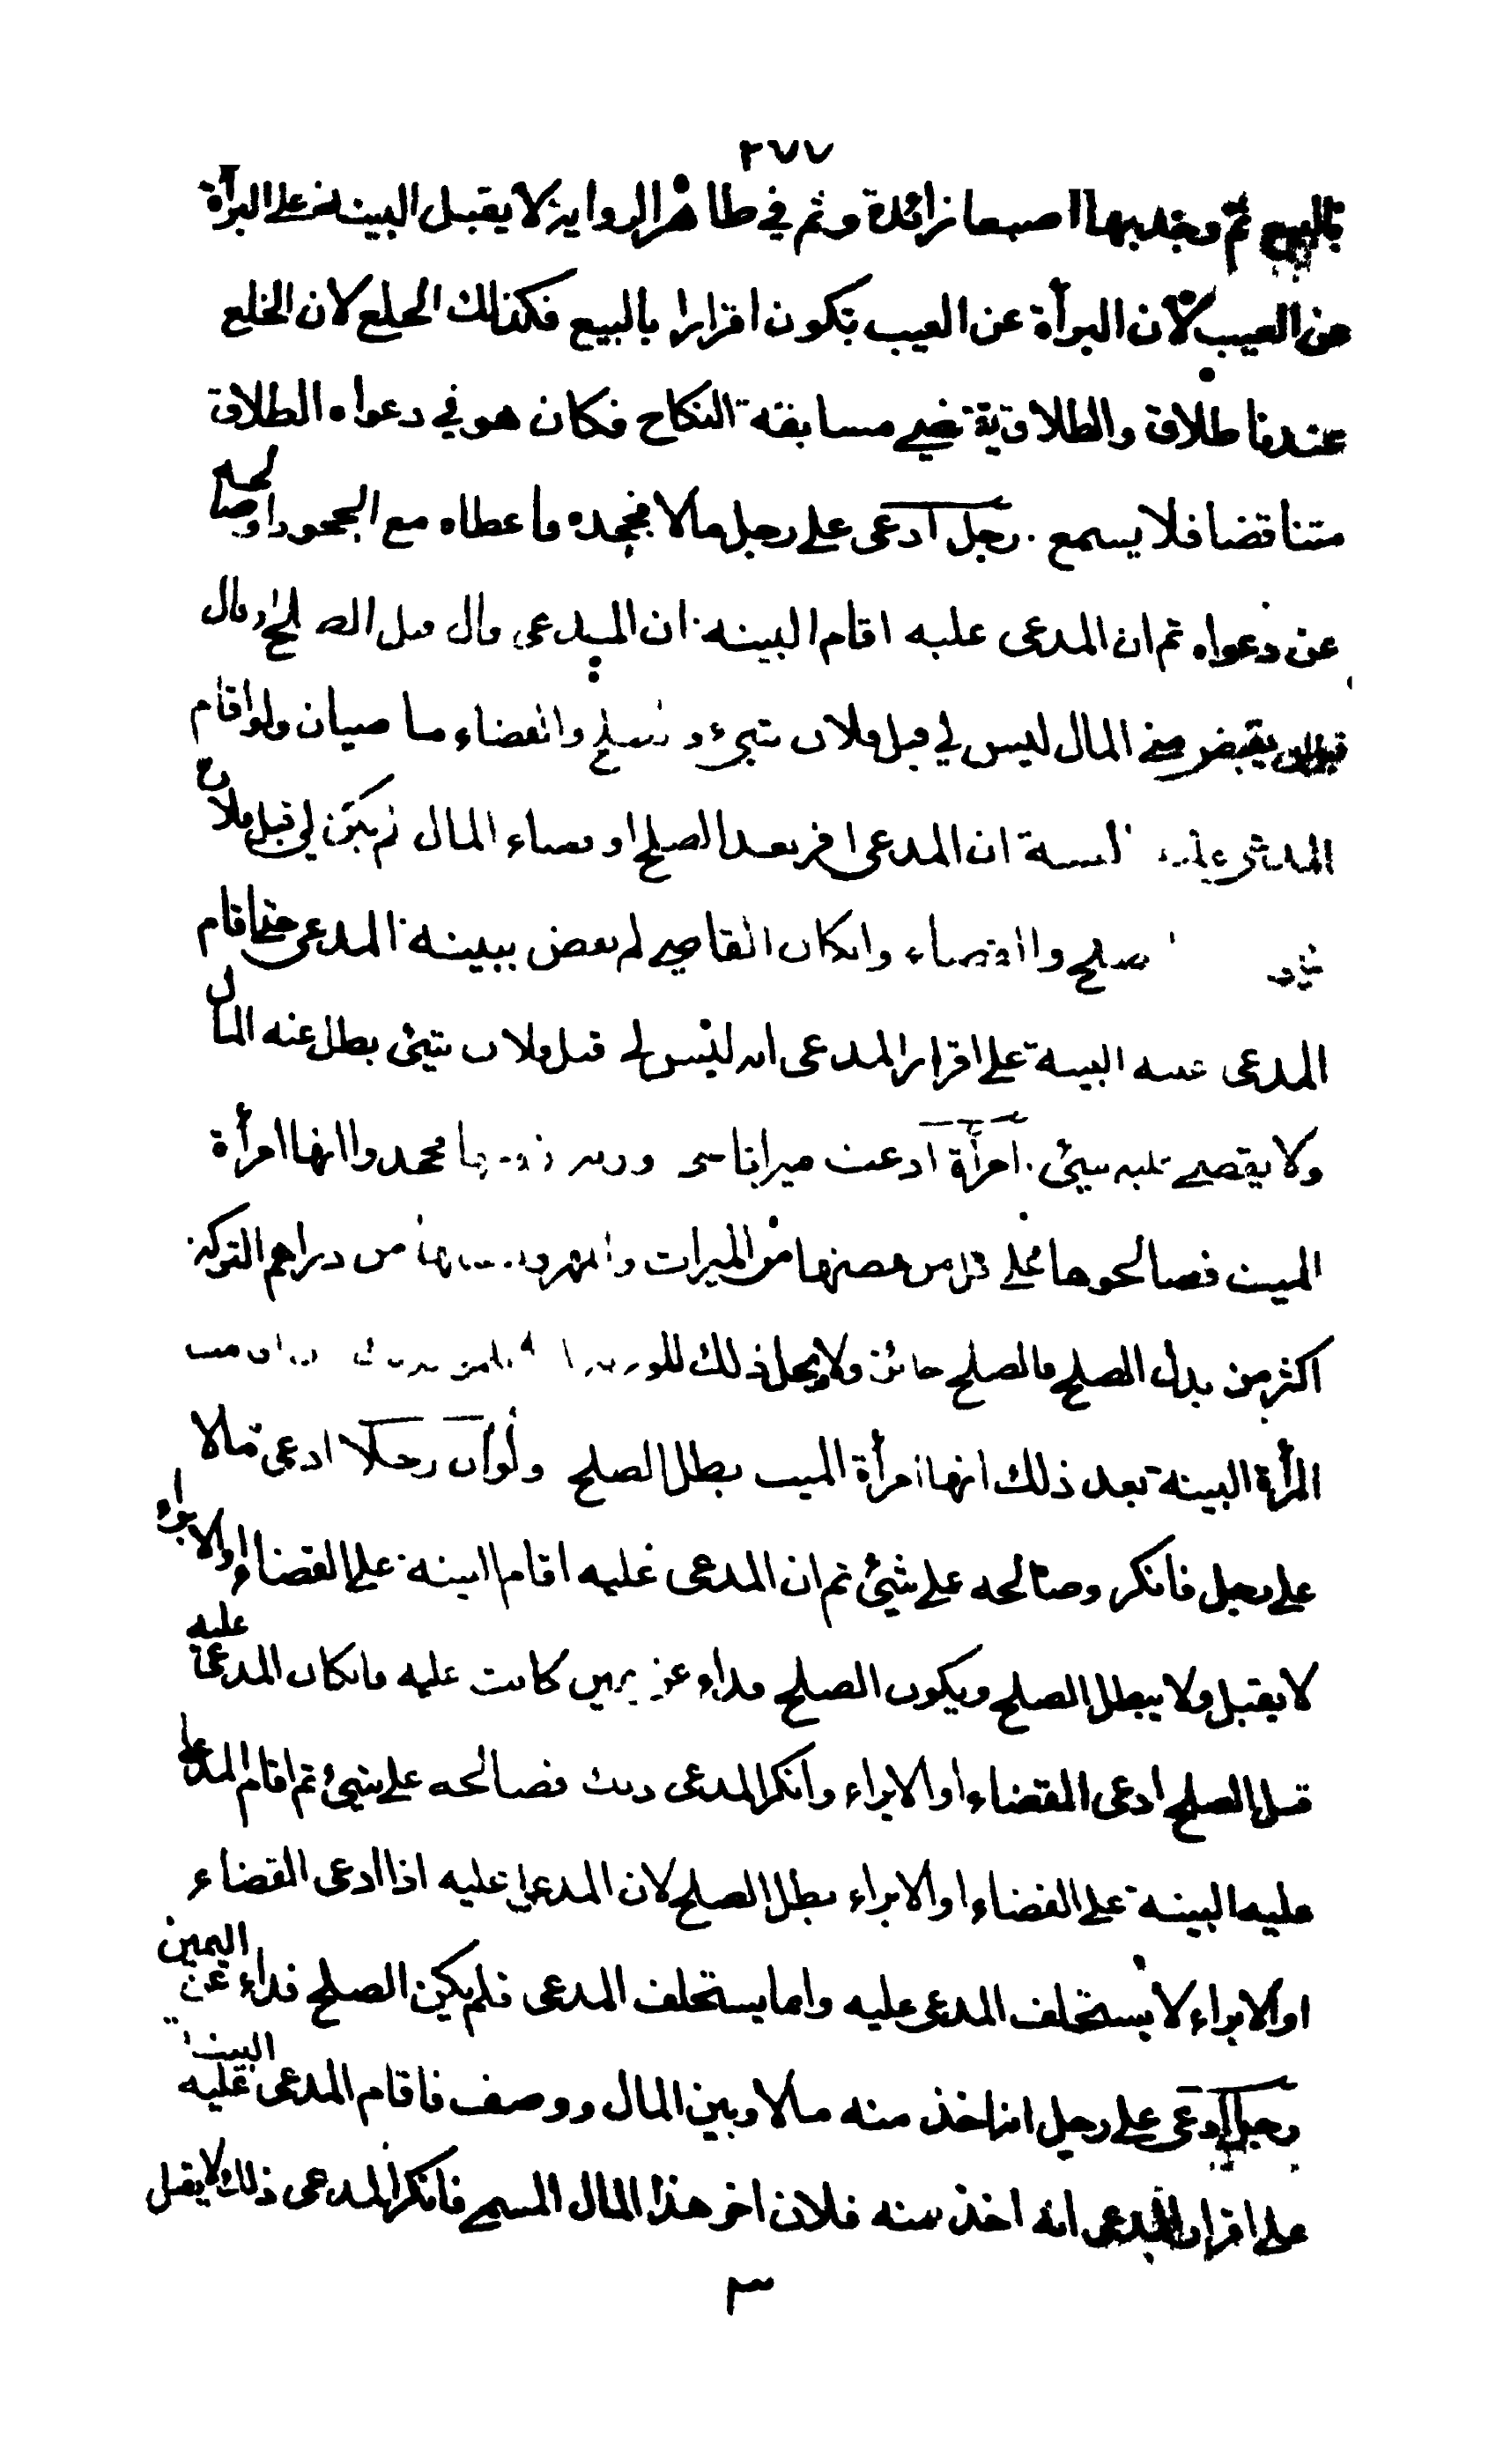 ٢٧٧
بالبيع ثم وجد بها اصبعا زائدة وثم في ظاهر الرواية لا يقبل البينة على البرأة
من العيب لان البرأة عن العيب تكون اقرارا بالبيع فكذلك الخلع لان الخلع
عندنا طلاق والطلاق يقتضي سابقة النكاح فكان هو في دعواه الطلاق
متناقضا فلا يسمع . رجل ادعى على رجل مالا فجحده فاعطاه مع الجحود او صالحه
عن دعواه ثم ان المدعى عليه اقام البينة ان المدعى قال قبل الصلح او قال
قبل ان يقبض مني المال ليس لي قبل فلان شيء والقضاء ماضيان ولو اقام
المدعى عليه البينة ان المدعى اقر بعد الصلح او قضاء المال لم يكن لي قبل فلان
الصلح والقضاء وان كان القاضي لم يقض ببينة المدعى حتى اقام
المدعى عليه البينة على اقرار المدعى انه ليس لي قبل فلان شيئ بطل عنه المال
ولا يقضى عليه بشيئ . امرأة ادعت ميراثا محمدوا انها امرأة
الميت فصالحوها على اقل من حصتها من الميراث والمهر من دراهم التركة
اكثر من بدل الصلح فالصلح جائز ولا يحل ذلك للورثة
المرأة البينة بعد ذلك انها امرأة الميت بطل الصلح ولو ان رجلا ادعى مالا
على رجل فانكر وصالحه على شيئ ثم ان المدعى عليه اقام البينة على القضاء او الابراء
لا يقبل ولا يبطل الصلح ويكون الصلح فداء عن يمين كانت عليه فان كان المدعى عليه
قبل الصلح ادعى القضاء او الابراء وانكر المدعى ذلك فصالحه على شيئ ثم اقام المدعا
عليه البينة على القضاء او الابراء بطل الصلح لان المدعى عليه اذا ادعى القضاء
او الابراء لا يستحلف المدعى عليه وانما يستحلف المدعى فلم يكن الصلح فداء عن اليمين
رجل ادعى على رجل انه اخذ منه مالا وبين المال ووصف فاقام المدعى عليه البينة
على اقرار المدعى انه اخذ منه فلان اخر هذا المال المسمى فانكر المدعى ذلك لا يقبل
٣